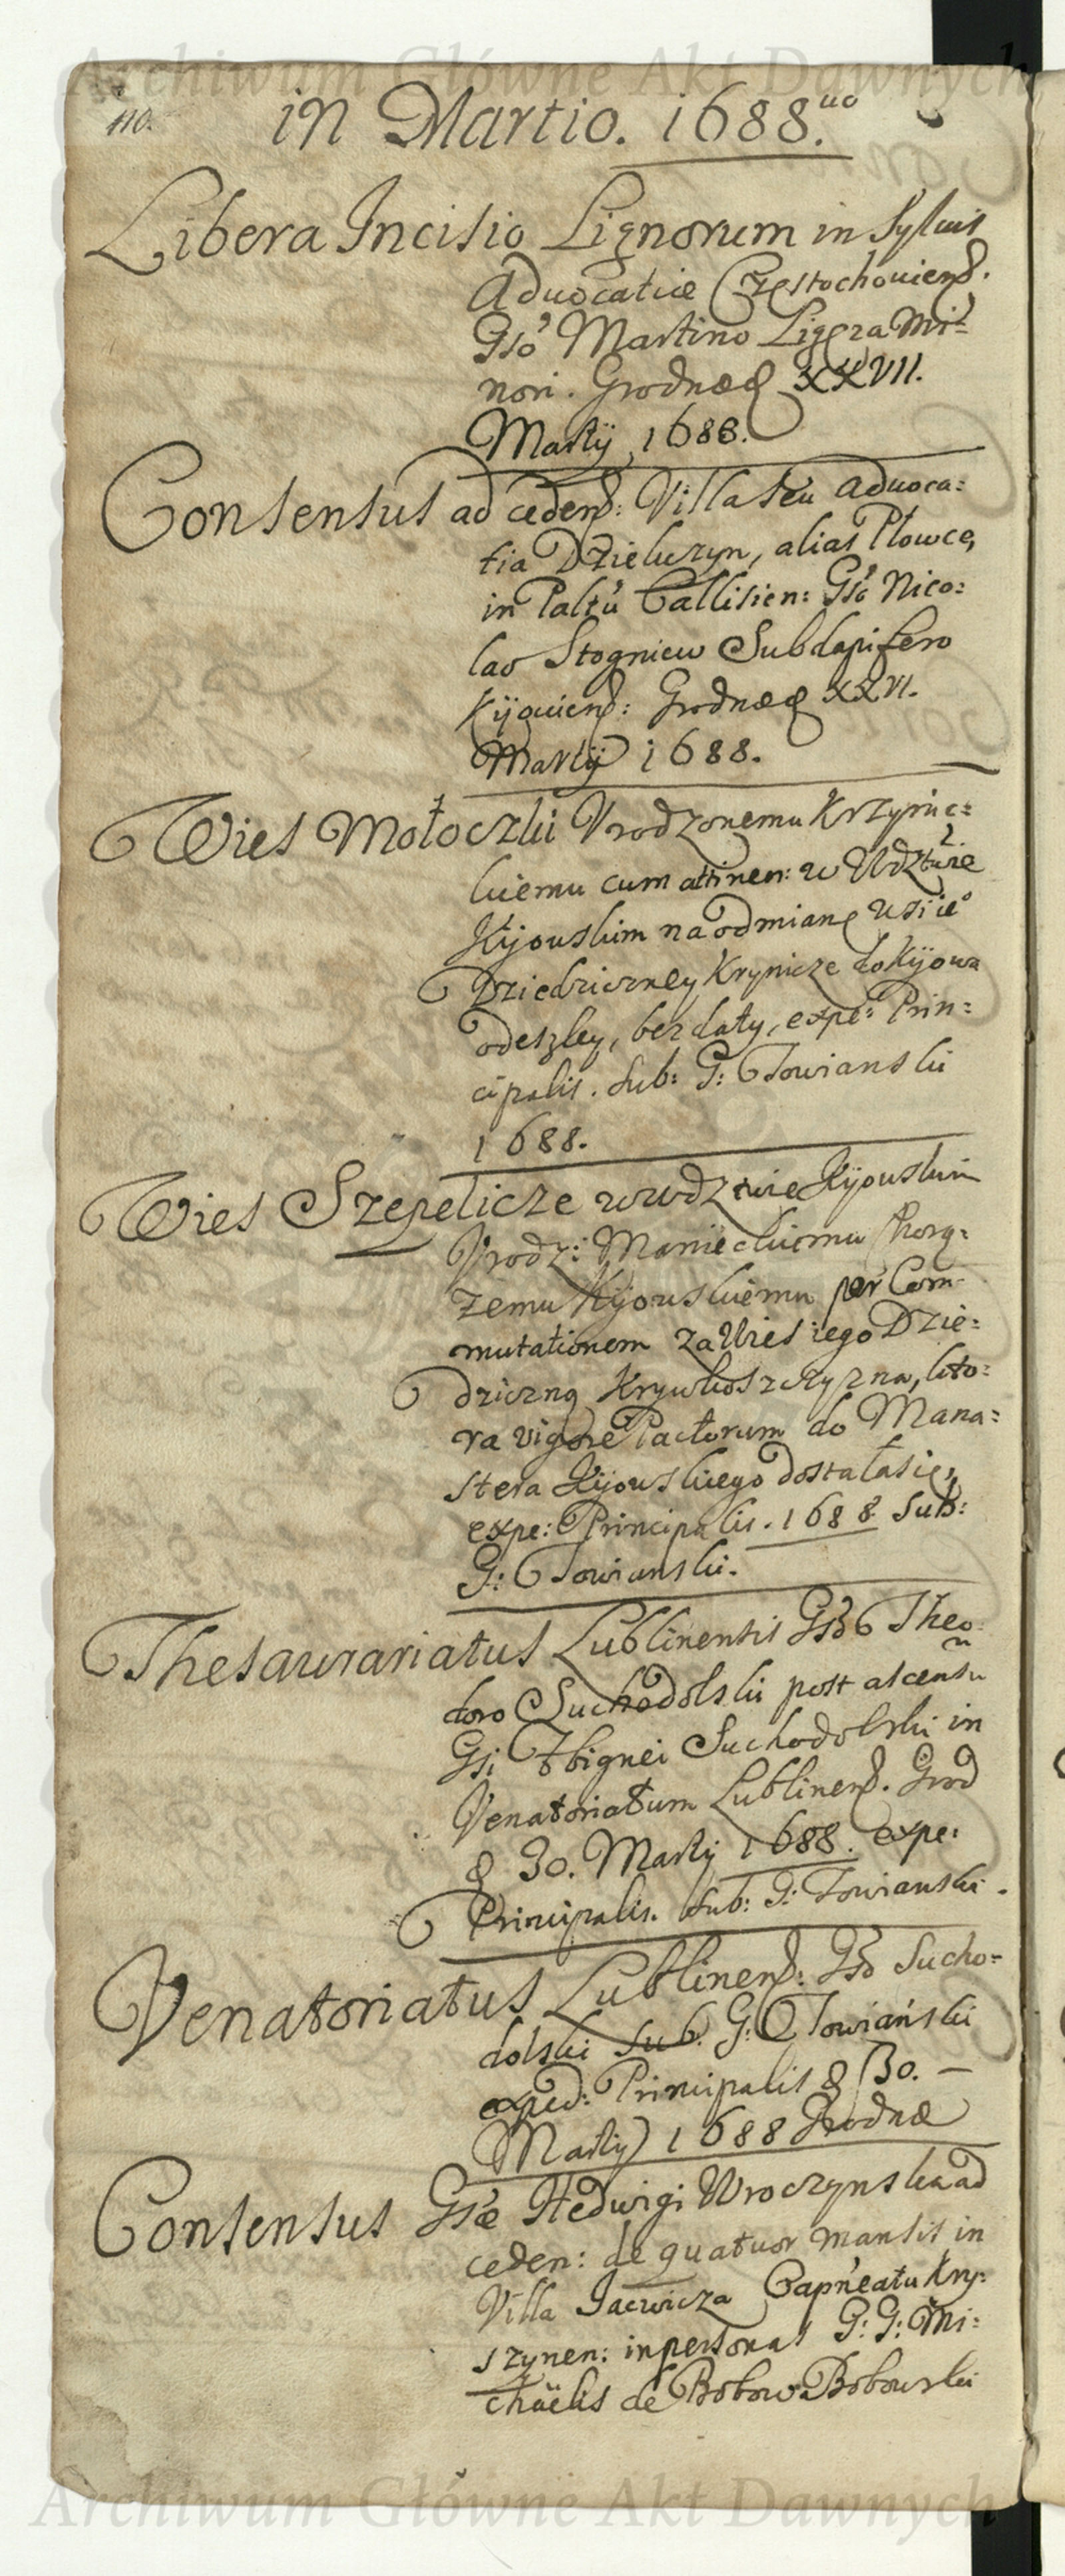 Archiwum Główne Akt Dawnych
110.
in Martio. 1688.uo
Libera Incisio Lignorum in Sylvis
Advocatiæ Częstochoviens.
Gso Martino Ligęza Mi=
nori. Grodnæ d XXVII.
Martÿ 1688.
Consensus ad cedend: Villa seu advoca=
tia Dzieluzyn, alias Płowce,
in Paltu Callisien: Gso Nico=
lao Stogniew Subdapifero
Kijouiens: Grodnæ d XXVI.
Martÿ 1688.
Wies Mołoczki Vrodzonemu Krzynic=
kiemu cum attinen: w Wdztwie
Kijouskim na odmianę wsi ie°
Dziedziczney Krynicze do Kijowa
odeszley, bez daty, expe: Prin=
cipalis. sub: G: Towianski
1688.
Wies Szepelicze w wdztwie Kÿouskim
Vrodz: Manieckiemu Chorą=
zemu Kijouskiemu per Com=
mutationem za Wies iego Dzie=
dziczną Krywkoszczyzna, kto=
ra vigore Pactorum do Mana=
stera Kijouskiego dostała się,
expe: Principalis. 1688 sub:
G: Towianski.
Thesaurariatus Lublinensis Gso Theo
doro Suchodolski post ascensu
Gsi Zbignei Suchodolski in
Venatoriatum Lublinens. Grod
d 30. Martÿ 1688. expe:
Principalis. sub: G: Towianski.
Venatoriatus Lublinens: Gso Sucho=
dolski sub. G: Towiański
exped: Principalis d 30. —
Martÿ 1688 Grodnæ
Consensus Gsæ Hedwigi Wroczynska ad
ceden: de quatuor mansis in
Villa Jacwicza Capneatu Kny=
szynen: in personas G: G: Mi=
chäelis de Bobow Bobowski
Archiwum Główne Akt Dawnych